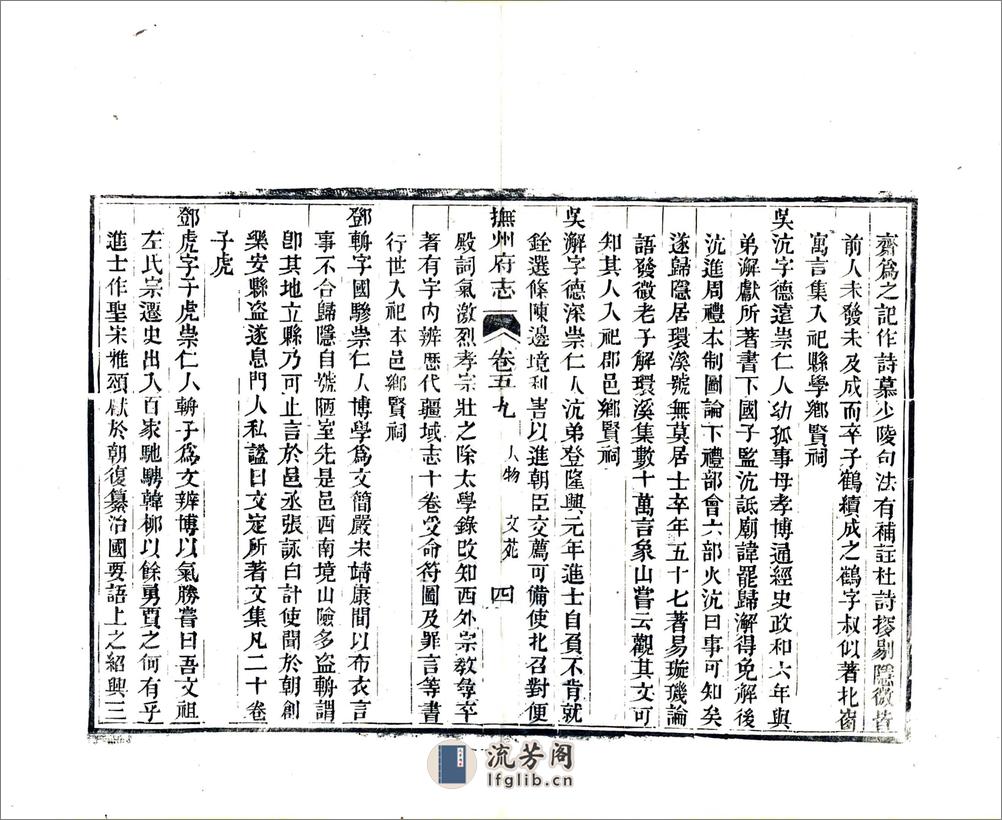 齋爲之記作詩慕少陵句法有補註杜詩搜剔隱微皆
前人未發未及成而卒子鶴續成之鶴字叔似著北窗
寓言集入祀縣學鄉賢祠
吳沆字德遠崇仁人幼孤事母孝博通經史政和六年與
弟澥獻所著書下國子監沆詆廟諱罷歸澥得免解後
沆進周禮本制圖論下禮部會六部火沆曰事可知矣
遂歸隱居環溪號無莫居士卒年五十七著易璇璣論
語發微老子解環溪集數十萬言象山嘗云觀其文可
知其人入祀郡邑鄉賢祠
吳澥字德深崇仁人沆弟登隆興元年進士自負不肯就
銓選條陳邊境利害以進朝臣交薦可備使北召對便
撫州府志 卷五九 人物 文苑 四
殿詞氣激烈孝宗壯之除太學錄改知西外宗教尋卒
著有宇內辨歷代疆域志十卷受命符圖及罪言等書
行世入祀本邑鄉賢祠
鄧輈字國驂崇仁人博學爲文簡嚴宋靖康間以布衣言
事不合歸隱自號陋室先是邑西南境山險多盜輈謂
卽其地立縣乃可止言於邑丞張詠白計使聞於朝創
樂安縣盜遂息門人私諡曰文定所著文集凡二十卷
子虎
鄧虎字子虎崇仁人輈子爲文辨博以氣勝嘗曰吾文祖
左氏宗遷史出入百家馳騁韓柳以餘勇賈之何有乎
進士作聖宋雅頌獻於朝復纂治國要語上之紹興三
流芳阁
lfglib.cn